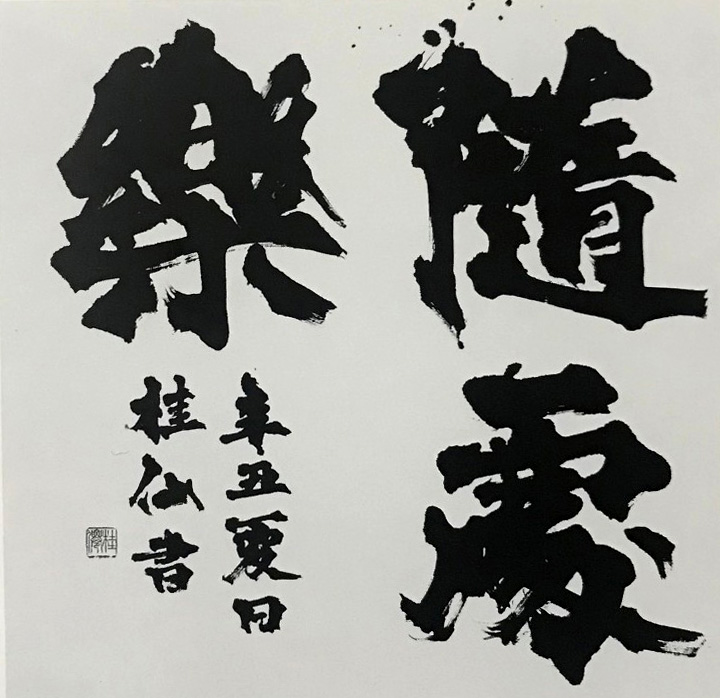 隨處
樂
辛丑夏日
桂仙書